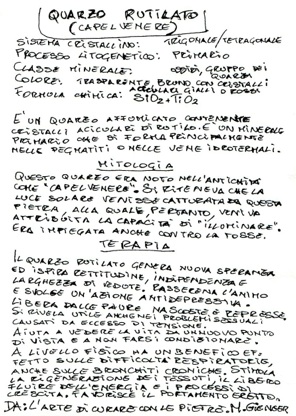 QUARZO RUTILATO
(CAPELVENERE)
SISTEMA CRISTALLINO: TRIGONALE/TETRAGONALE
PROCESSO LITOGENETICO: PRIMARIO
CLASSE MINERALE: OSSIDI, GRUPPO DEI QUARZI
COLORE: TRASPARENTE, BRUNO CON CRISTALLI ACICULARI GIALLI O ROSSI
FORMULA CHIMICA: SIO2+TIO2
E' UN QUARZO AFFUMICATO CONTENENTE
CRISTALLI ACICULARI DI RUTILO. E' UN MINERALE
PRIMARIO CHE SI FORMA PRINCIPALMENTE
NELLE PEGMATITI O NELLE VENE IDROTERMALI.
MITOLOGIA
QUESTO QUARZO ERA NOTO NELL'ANTICHITÀ
COME "CAPELVENERE". SI RITENEVA CHE LA
LUCE SOLARE VENISSE CATTURATA DA QUESTA
PIETRA, ALLA QUALE, PERTANTO, VENIVA
ATTRIBUITA LA CAPACITÀ DI "ILLUMINARE".
ERA IMPIEGATA ANCHE CONTRO LA TOSSE.
TERAPIA
IL QUARZO RUTILATO GENERA NUOVA SPERANZA
ED ISPIRA RETTITUDINE, INDIPENDENZA E
LARGHEZZA DI VEDUTE. RASSERENA L'ANIMO
E SVOLGE UN'AZIONE ANTIDEPRESSIVA.
LIBERA DALLE PAURE NASCOSTE E REPRESSE.
SI RIVELA UTILE ANCHE NEI PROBLEMI SESSUALI
CAUSATI DA ECCESSO DI TENSIONE.
AIUTA A VEDERE LA VITA DA UN NUOVO PUNTO
DI VISTA E A NON FARSI CONDIZIONARE.
A LIVELLO FISICO HA UN BENEFICO EF-
FETTO SULLE DIFFICOLTÀ RESPIRATORIE,
ANCHE SULLE BRONCHITI CRONICHE, STIMOLA
LA RIGENERAZIONE DEI TESSUTI, IL LIBERO
FLUIRE DELL'ENERGIA E I PROCESSI DI
CRESCITA. FAVORISCE IL PORTAMENTO ERETTO.
DA: L'ARTE DI CURARE CON LE PIETRE. M. GIENGER